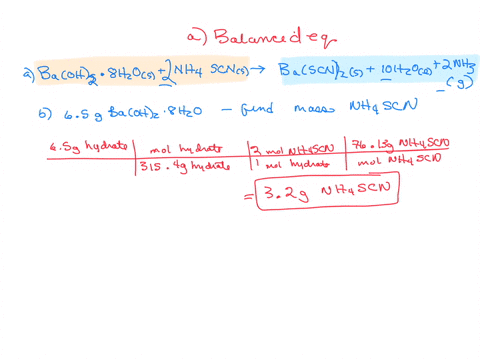 a) Balanced eq
a) Ba(OH)2 · 8H2O(s) + 2NH4 SCN(s) → Ba(SCN)2(s) + 10H2O(l) + 2NH3 (g)
b) 6.5g Ba(OH)2 · 8H2O — find mass NH4SCN
6.5g hydrate | mol hydrate | 2 mol NH4SCN | 76.13g NH4SCN
315.4g hydrate | 1 mol hydrate | mol NH4SCN
= 3.2g NH4SCN